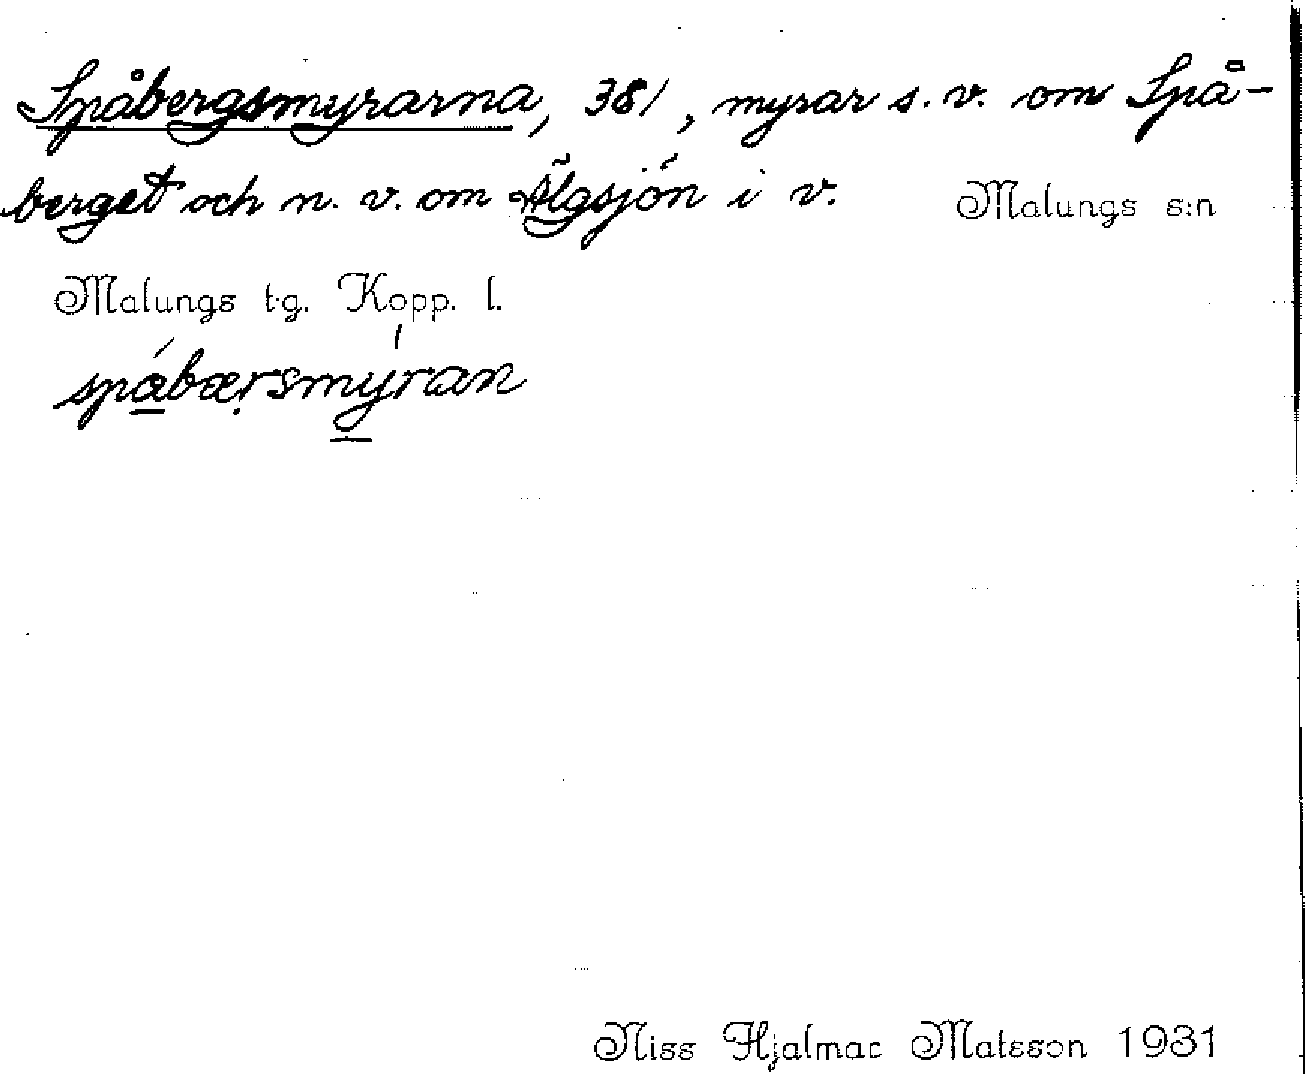 Spåbergsmyrarna, 381, myrar s. v. om Spå-
berget och n. v. om Älgsjön i v. Malungs s:n
Malungs tg. Kopp. l.
spábærsmýran
Niss Hjalmar Matsson 1931